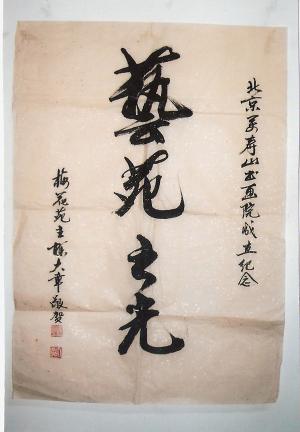 北京万寿山书画院成立纪念
藝苑之光
梅花苑主 大章敬贺